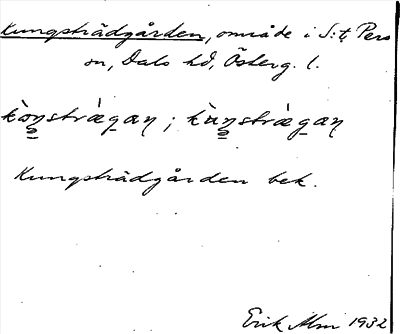 Kungsträdgården, område i S:t Pers
sn, Dals hd, Österg. l.
kòn̥strá̀gan; kùn̥strá̀gan
Kungsträdgården bek.
Erik Alm 1932